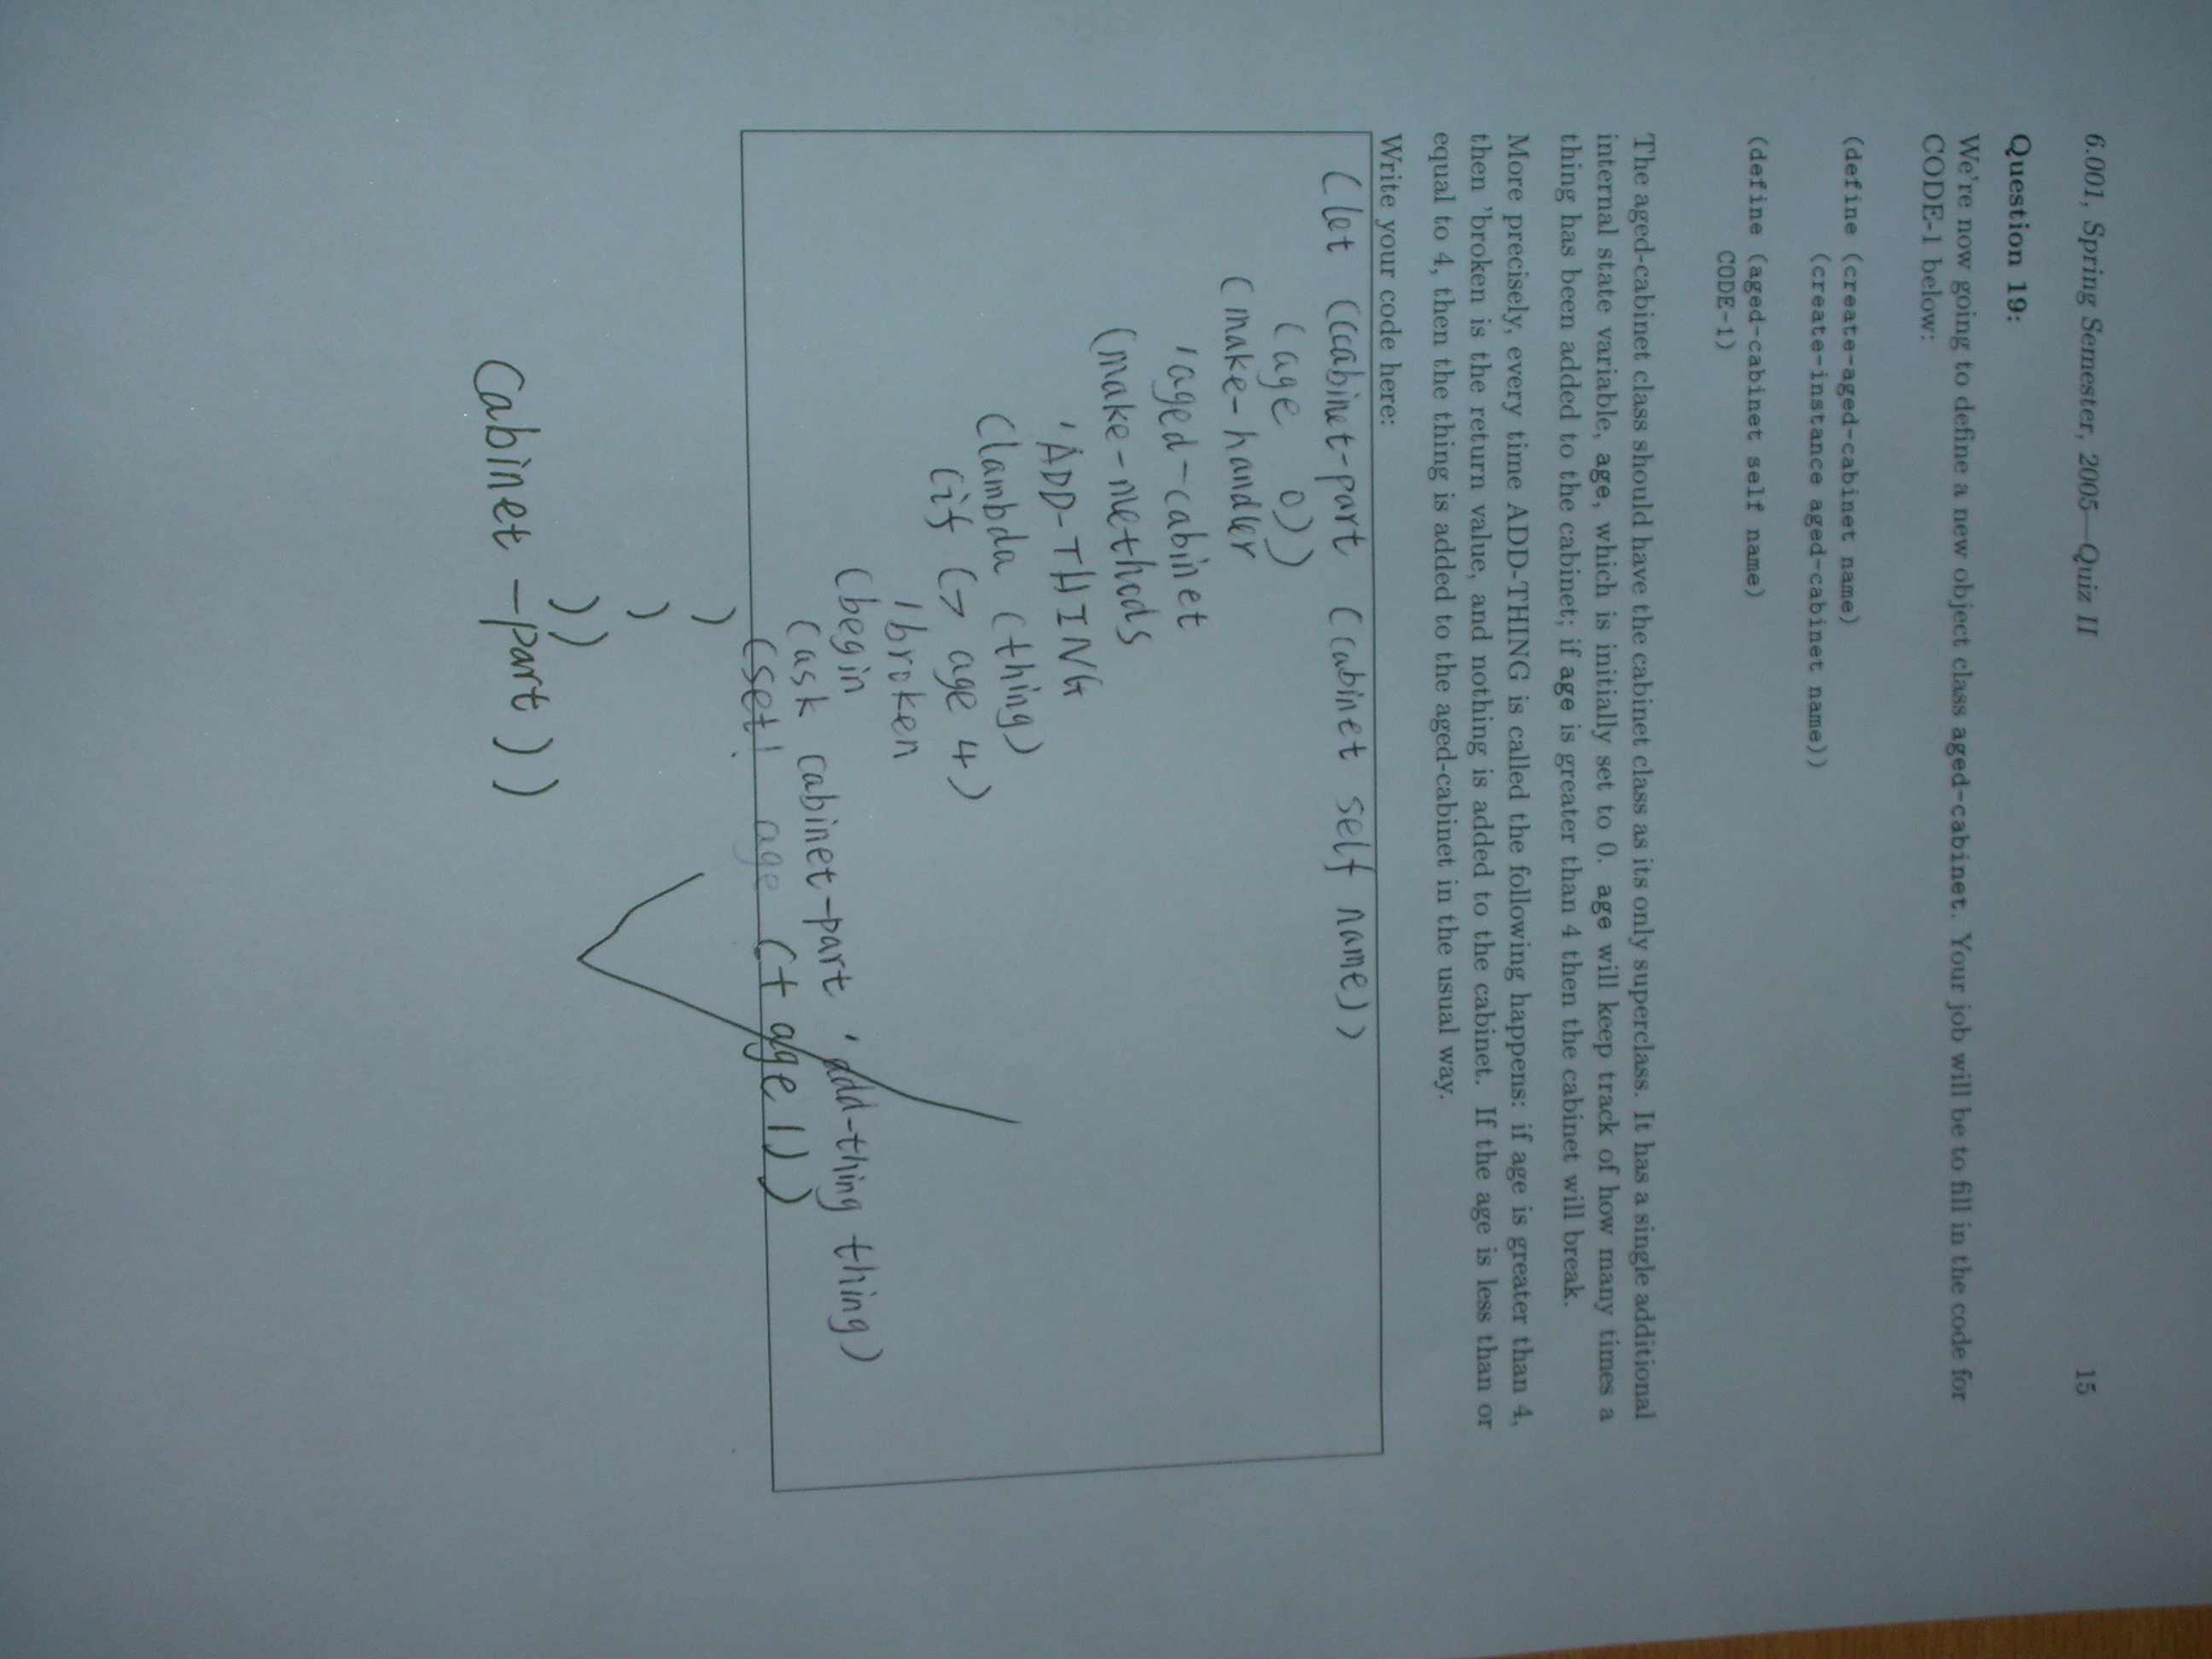 6.001, Spring Semester, 2005—Quiz II 15
Question 19:
We're now going to define a new object class aged-cabinet. Your job will be to fill in the code for
CODE-1 below:
(define (create-aged-cabinet name)
(create-instance aged-cabinet name))
(define (aged-cabinet self name)
CODE-1)
The aged-cabinet class should have the cabinet class as its only superclass. It has a single additional
internal state variable, age, which is initially set to 0. age will keep track of how many times a
thing has been added to the cabinet; if age is greater than 4 then the cabinet will break.
More precisely, every time ADD-THING is called the following happens: if age is greater than 4,
then 'broken is the return value, and nothing is added to the cabinet. If the age is less than or
equal to 4, then the thing is added to the aged-cabinet in the usual way.
Write your code here:
(let ((cabinet-part (cabinet self name))
(age 0))
(make-handler
'aged-cabinet
(make-methods
'ADD-THING
(lambda (thing)
(if (> age 4)
'broken
(begin
(ask cabinet-part 'add-thing thing)
(set! age (+ age 1))
)
)
))
cabinet-part))